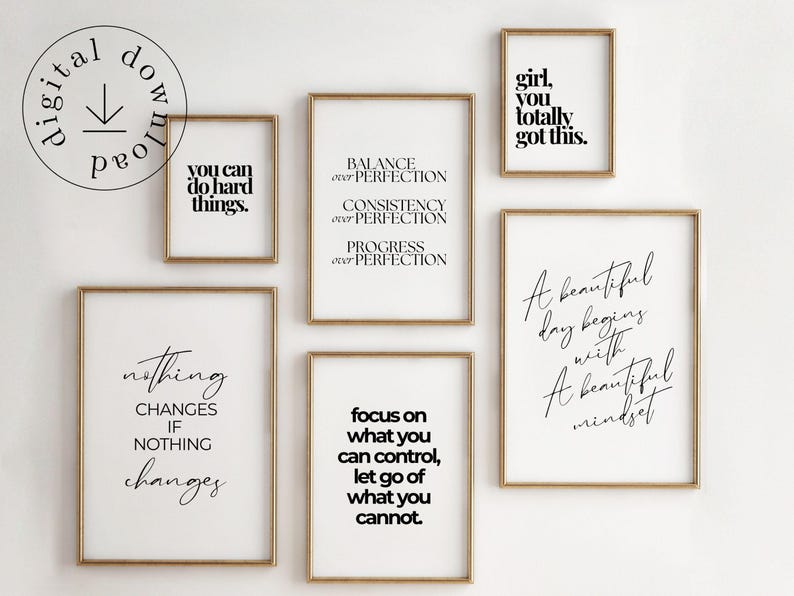 digital download
you can
do hard
things.
BALANCE
over PERFECTION
CONSISTENCY
over PERFECTION
PROGRESS
over PERFECTION
girl,
you
totally
got this.
nothing
CHANGES
IF
NOTHING
changes
focus on
what you
can control,
let go of
what you
cannot.
A beautiful
day begins
with
A beautiful
mindset